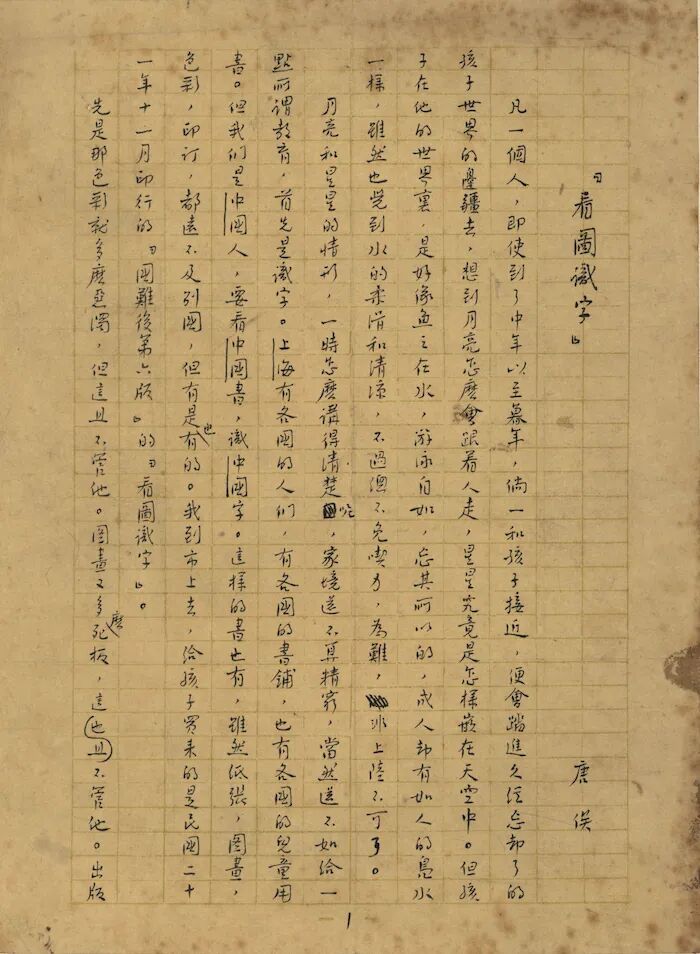 『看圖識字』
唐俟
凡一個人，即使到了中年以至暮年，倘一和孩子接近，便會踏進久經忘却了的
孩子世界的邊疆去，想到月亮怎麽會跟着人走，星星究竟是怎樣嵌在天空中。但孩
子在他的世界裏，是好像魚之在水，游泳自如，忘其所以的，成人却有如人的鳧水
一樣，雖然也覺到水的柔滑和清涼，不過總不免喫力，為難，非上陸不可了。
月亮和星星的情形，一時怎麽講得清楚呢，家境還不算精窮，當然還不如給一
點所謂教育，首先是識字。上海有各國的人們，有各國的書鋪，也有各國的兒童用
書。但我們是中國人，要看中國書，識中國字。這樣的書也有，雖然紙張，圖畫，
色彩，印訂，都遠不及別國，但有是也有的。我到市上去，給孩子買來的是民國二十
一年十一月印行的『國難後第六版』的『看圖識字』。
先是那色彩就多麽惡濁，但這且不管他。圖畫又多麽死板，這也且不管他。出版
1